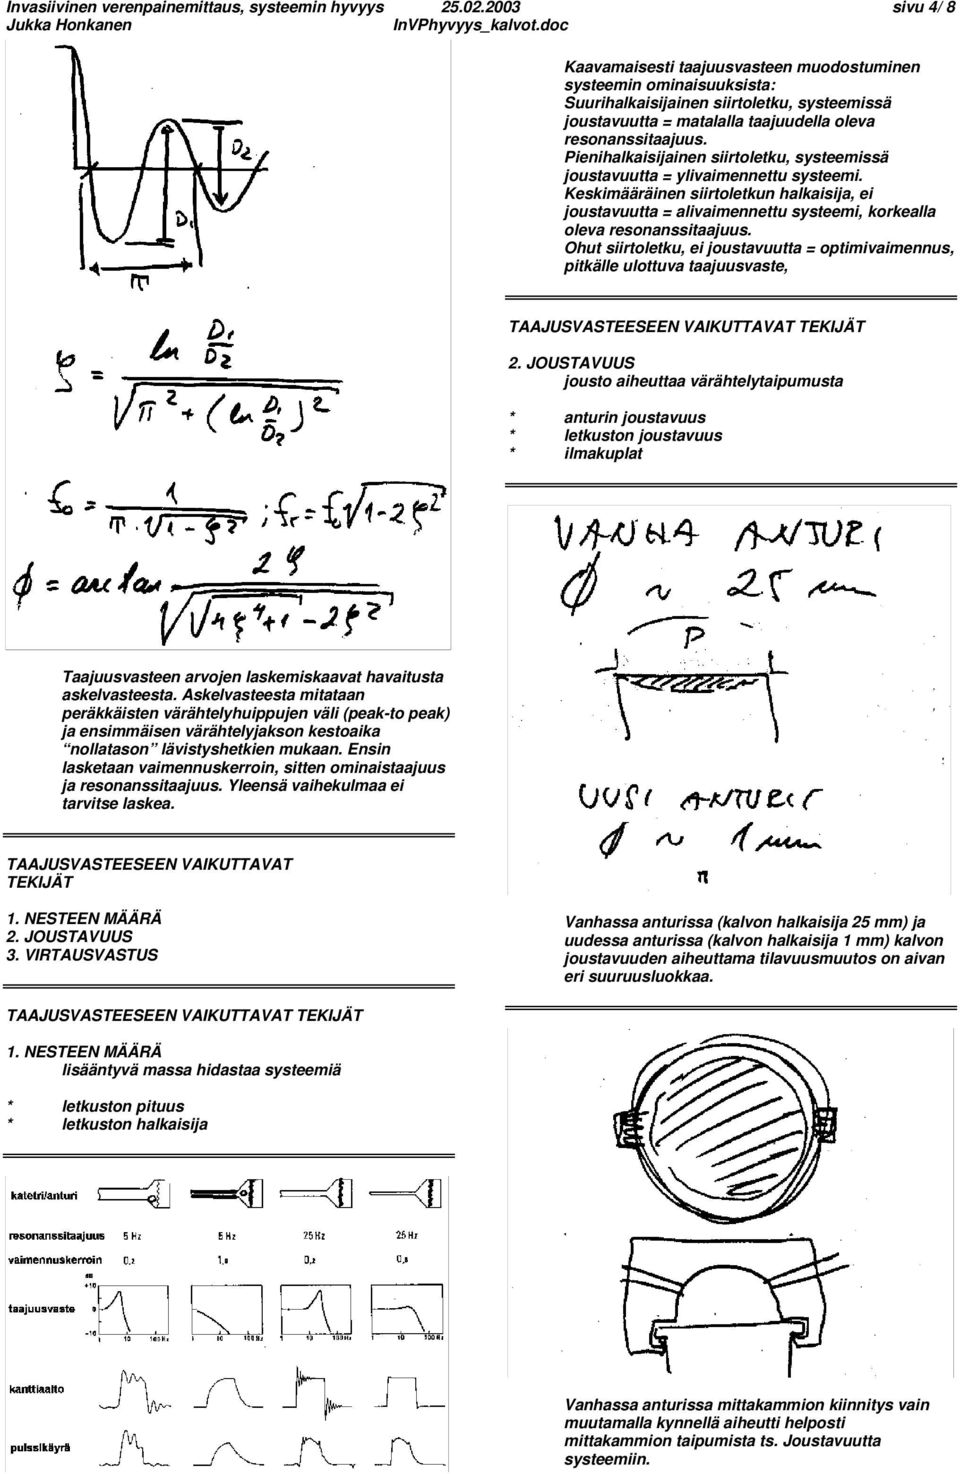 Invasiivinen verenpainemittaus, systeemin hyvyys 25.02.2003 sivu 4/ 8
Jukka Honkanen InVPhyvyys_kalvot.doc
D2
D1
π
ζ = ln D1/D2 / √(π² + (ln D1/D2)²)
f0 = 1 / π·√(1-ζ²) ; fr = f0√(1-2ζ²)
ϕ = arctan 2ζ / √(√(4ζ⁴+1) - 2ζ²)
Taajuusvasteen arvojen laskemiskaavat havaitusta
askelvasteesta. Askelvasteesta mitataan
peräkkäisten värähtelyhuippujen väli (peak-to peak)
ja ensimmäisen värähtelyjakson kestoaika
“nollatason” lävistyshetkien mukaan. Ensin
lasketaan vaimennuskerroin, sitten ominaistaajuus
ja resonanssitaajuus. Yleensä vaihekulmaa ei
tarvitse laskea.
TAAJUSVASTEESEEN VAIKUTTAVAT
TEKIJÄT
1. NESTEEN MÄÄRÄ
2. JOUSTAVUUS
3. VIRTAUSVASTUS
TAAJUSVASTEESEEN VAIKUTTAVAT TEKIJÄT
1. NESTEEN MÄÄRÄ
lisääntyvä massa hidastaa systeemiä
* letkuston pituus
* letkuston halkaisija
katetri/anturi
resonanssitaajuus 5 Hz 5 Hz 25 Hz 25 Hz
vaimennuskerroin 0,2 1,0 0,2
+10
taajuusvaste 0
-10
1 10 100 Hz 1 10 100 Hz 1 10 100 Hz 1 10 100 Hz
kanttiaalto
pulssikäyrä
Kaavamaisesti taajuusvasteen muodostuminen
systeemin ominaisuuksista:
Suurihalkaisijainen siirtoletku, systeemissä
joustavuutta = matalalla taajuudella oleva
resonanssitaajuus.
Pienihalkaisijainen siirtoletku, systeemissä
joustavuutta = ylivaimennettu systeemi.
Keskimääräinen siirtoletkun halkaisija, ei
joustavuutta = alivaimennettu systeemi, korkealla
oleva resonanssitaajuus.
Ohut siirtoletku, ei joustavuutta = optimivaimennus,
pitkälle ulottuva taajuusvaste,
TAAJUSVASTEESEEN VAIKUTTAVAT TEKIJÄT
2. JOUSTAVUUS
jousto aiheuttaa värähtelytaipumusta
* anturin joustavuus
* letkuston joustavuus
* ilmakuplat
VANHA ANTURI
∅ ~ 25 mm
P
UUSI ANTURI
∅ ~ 1 mm
Vanhassa anturissa (kalvon halkaisija 25 mm) ja
uudessa anturissa (kalvon halkaisija 1 mm) kalvon
joustavuuden aiheuttama tilavuusmuutos on aivan
eri suuruusluokkaa.
Vanhassa anturissa mittakammion kiinnitys vain
muutamalla kynnellä aiheutti helposti
mittakammion taipumista ts. Joustavuutta
systeemiin.